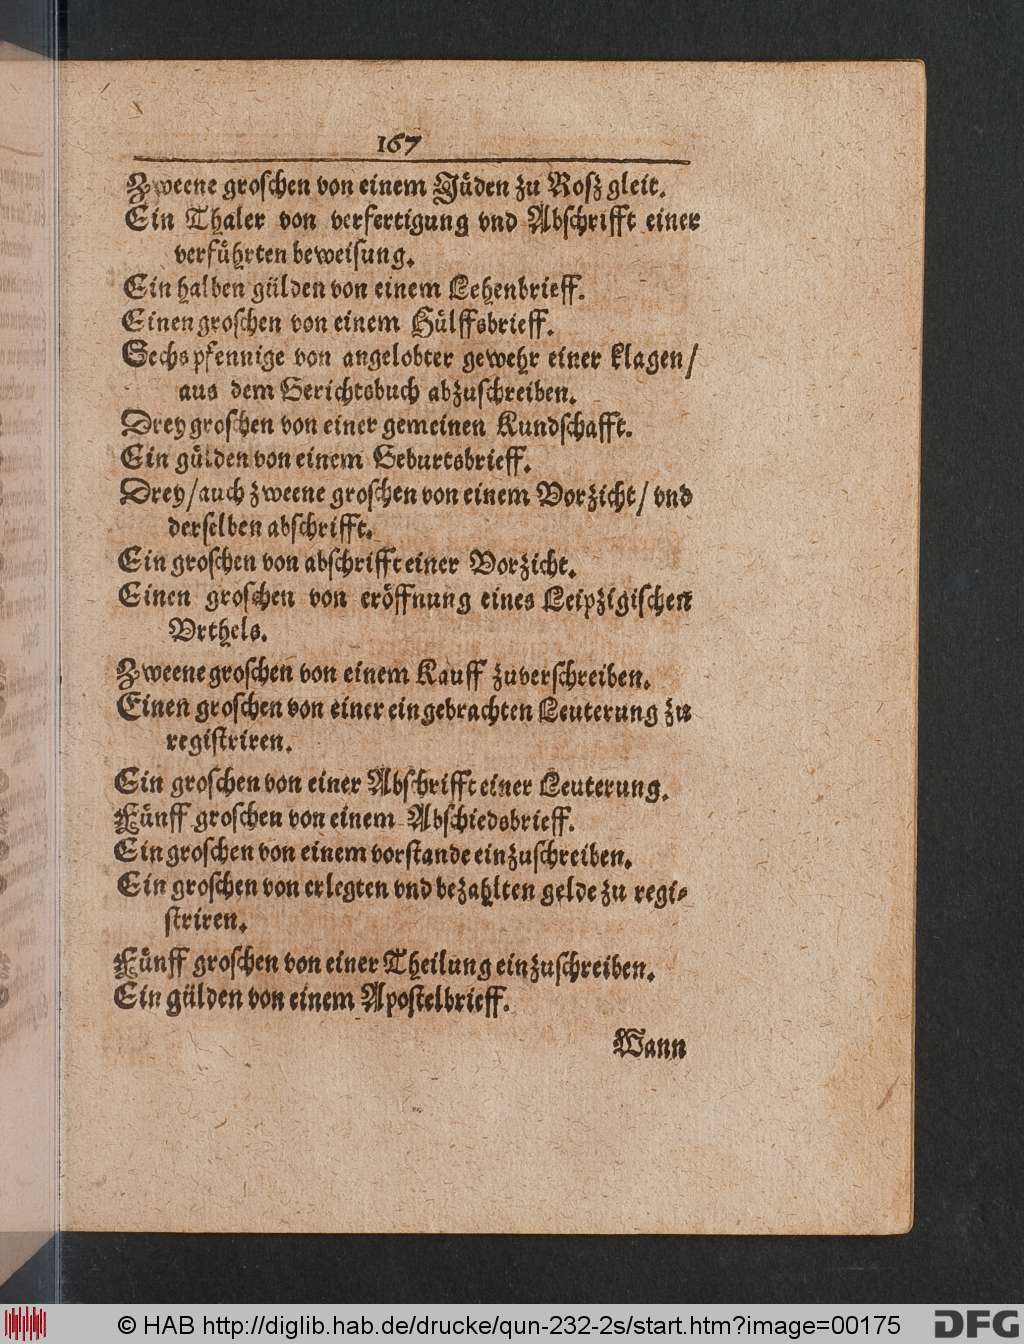 167
Zweene groschen von einem Jüden zu Roſz gleit.
Ein Thaler von verfertigung vnd Abschrifft einer
verführten beweisung.
Ein halben gülden von einem Lehenbrieff.
Einen groschen von einem Hülffsbrieff.
Sechs pfennige von angelobter gewehr einer klagen/
aus dem Gerichtsbuch abzuschreiben.
Drey groschen von einer gemeinen Kundschafft.
Ein gülden von einem Geburtsbrieff.
Drey/auch zweene groschen von einem Vorzicht/ vnd
derselben abschrifft.
Ein groschen von abschrifft einer Vorzicht.
Einen groschen von eröffnung eines Leipzigischen
Vrthels.
Zweene groschen von einem Kauff zuverschreiben.
Einen groschen von einer eingebrachten Leuterung zu
registriren.
Ein groschen von einer Abschrifft einer Leuterung.
Fünff groschen von einem Abschiedsbrieff.
Ein groschen von einem vorstande einzuschreiben.
Ein groschen von erlegten vnd bezahlten gelde zu regi-
striren.
Fünff groschen von einer Theilung einzuschreiben.
Ein gülden von einem Apostelbrieff.
Wann
© HAB http://diglib.hab.de/drucke/qun-232-2s/start.htm?image=00175
DFG